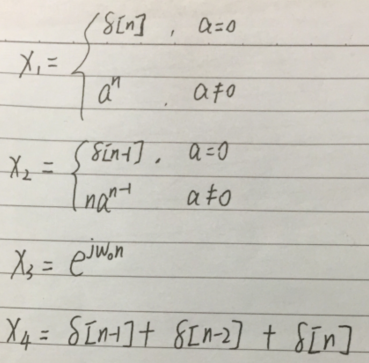 X₁ = { δ[n] , a=0
aⁿ . a≠0
X₂ = { δ[n-1] . a=0
naⁿ⁻¹ a≠0
X₃ = e^{jω₀n}
X₄ = δ[n-1] + δ[n-2] + δ[n]